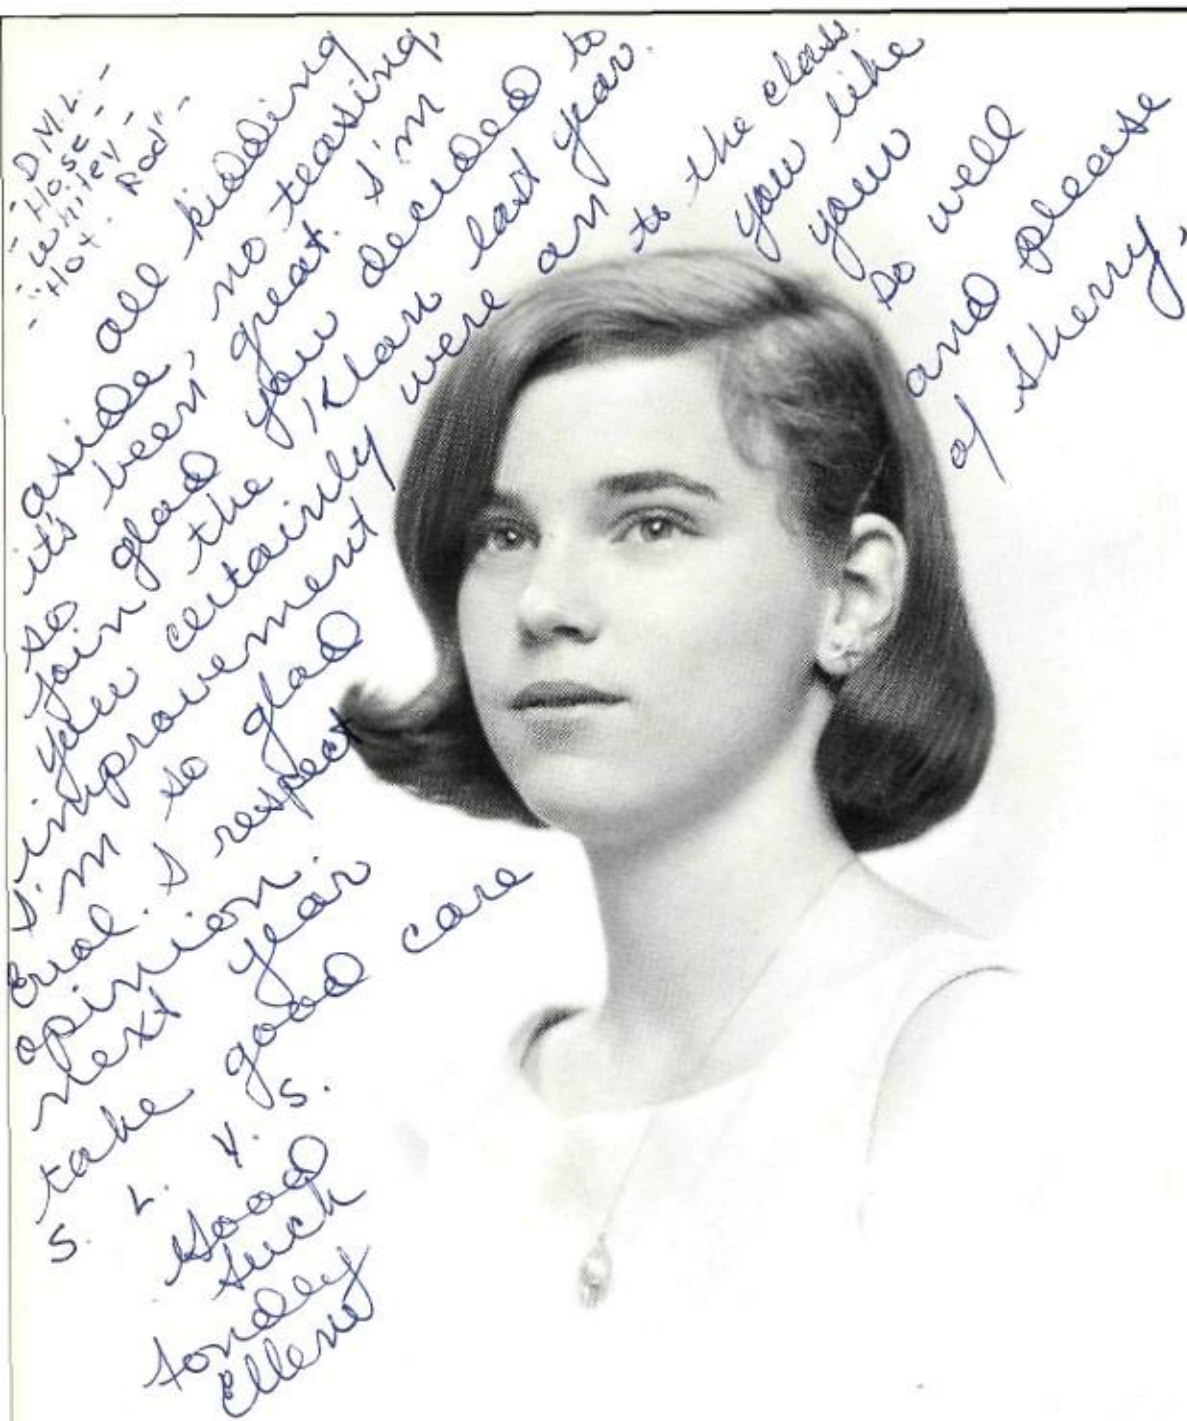 - D.M.L. -
- Hose -
- Whitey -
- "Hot. Rod" -
all kidding
aside, no teasing,
it's been great. I'm
so glad you decided to
join the Klan last year.
You certainly were an
improvement to the class.
I'm so glad you like
I respect your
opinion. so well
Next year and please
take good care of Sherry,
S. L. Y. S.
Good
Luck
Fondley
Ellene